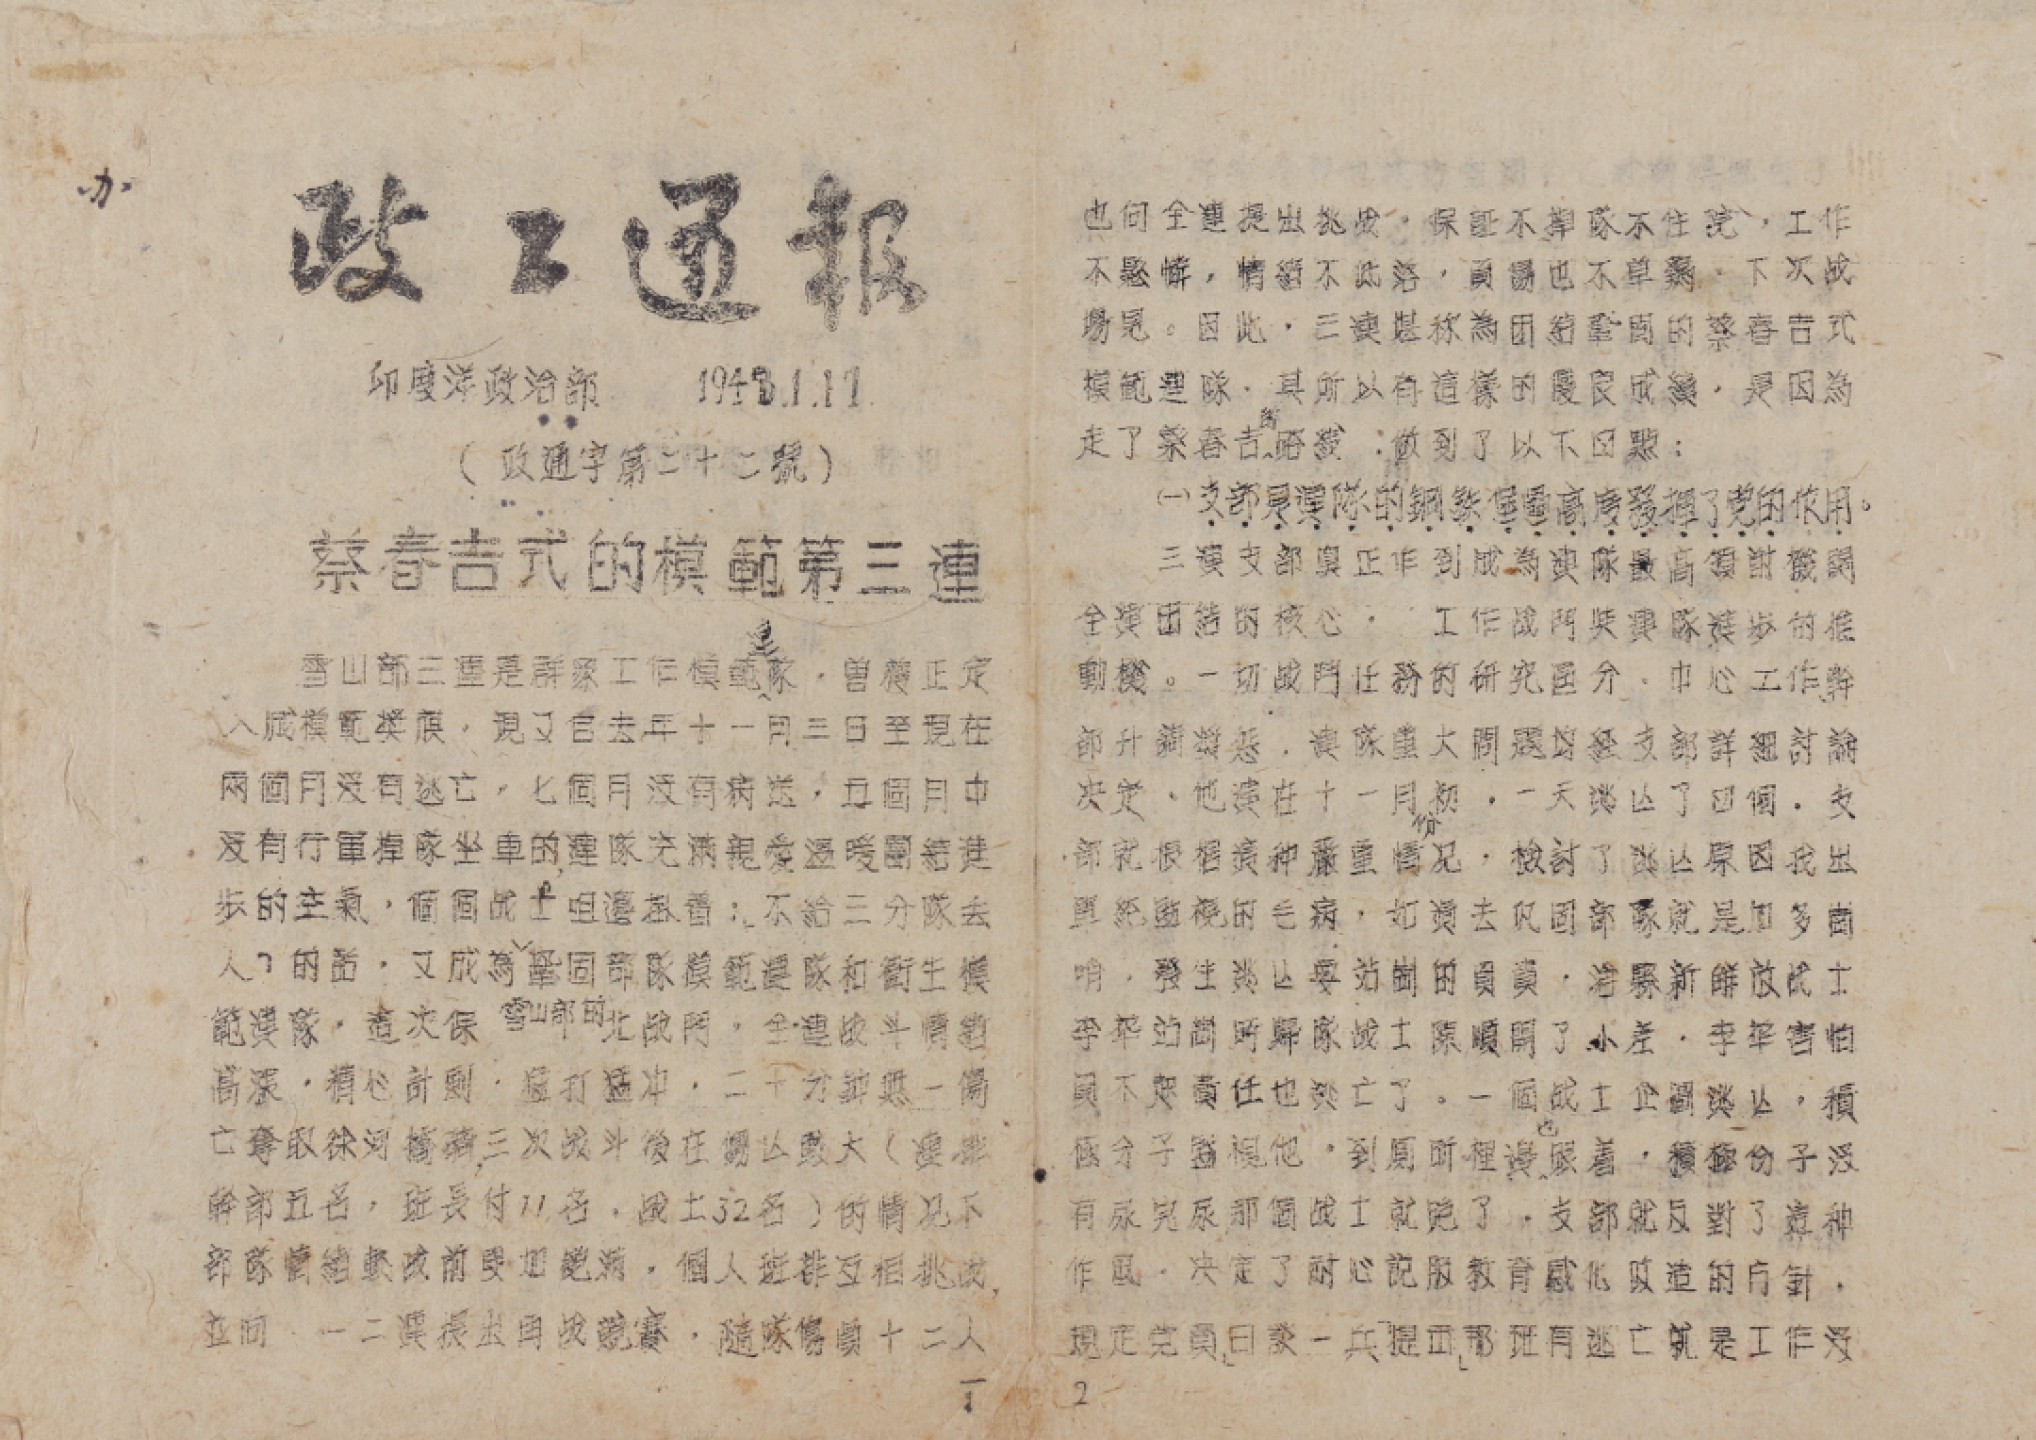 办
政工通報
印度洋政治部 1948.1.17.
(政通字第二十二號)
蔡春吉式的模範第三連
雪山部三連是群眾工作模範隊,曾獲正定
入城模範獎旗,現又自去年十一月三日至現在
兩個月沒有逃亡,七個月沒有病送,五個月中
沒有行軍掉隊坐車的,連隊充滿親愛溫暖團結進
步的主氣,個個战士咀邊掛着:不給三分隊去
人了的話,又成為鞏固部隊模範連隊和衛生模
範連隊,這次保 雪山部的北战鬥,全連战斗情緒
高漲,精心計劃,猛打猛冲,二十分鐘無一傷
亡奪取徐河橋,三次战斗後在傷亡甚大(連排
幹部五名,班長付11名,战士32名)的情况下
部隊情緒較战前更加飽滿,個人班排互相挑战,
並向 一二連提出再战競賽,隨隊傷員十二人
1
也向全連提出挑战,保証不掉隊不住院,工作
不鬆懈,情緒不低落,負傷也不草鷄,下次战
場見。因此,三連堪称為团結鞏固的蔡春吉式
模範連隊,其所以有這樣的優良成績,是因為
走了蔡春吉的路綫,做到了以下四點:
(一)支部是連隊的鋼鉄堡壘高度發揮了党的作用。
三連支部真正作到成為連隊最高領討機関
全連团結的核心, 工作战鬥與連隊進步的推
動機。一切战鬥任務的研究區分,中心工作,幹
部升調獎惩,連隊重大問題均經支部詳細討論
决定,他連在十一月初,一天逃亡了四個,支
部就根據這种嚴重情况,檢討了逃亡原因找出
單純監視的毛病,如過去巩固部隊就是加多崗
哨,發生逃亡要站崗的負責,滄縣新解放战士
李華站崗時歸隊战士陳順開了小差,李華害怕
負不起責任也逃亡了。一個战士企圖逃亡,積
極分子監視他,到厠所裡邊也跟着,積極份子沒
有尿完尿那個战士就跑了,支部就反對了這种
作風,决定了耐心説服教育感化改造的方針,
規定党員日談一兵提出那班有逃亡就是工作沒
2